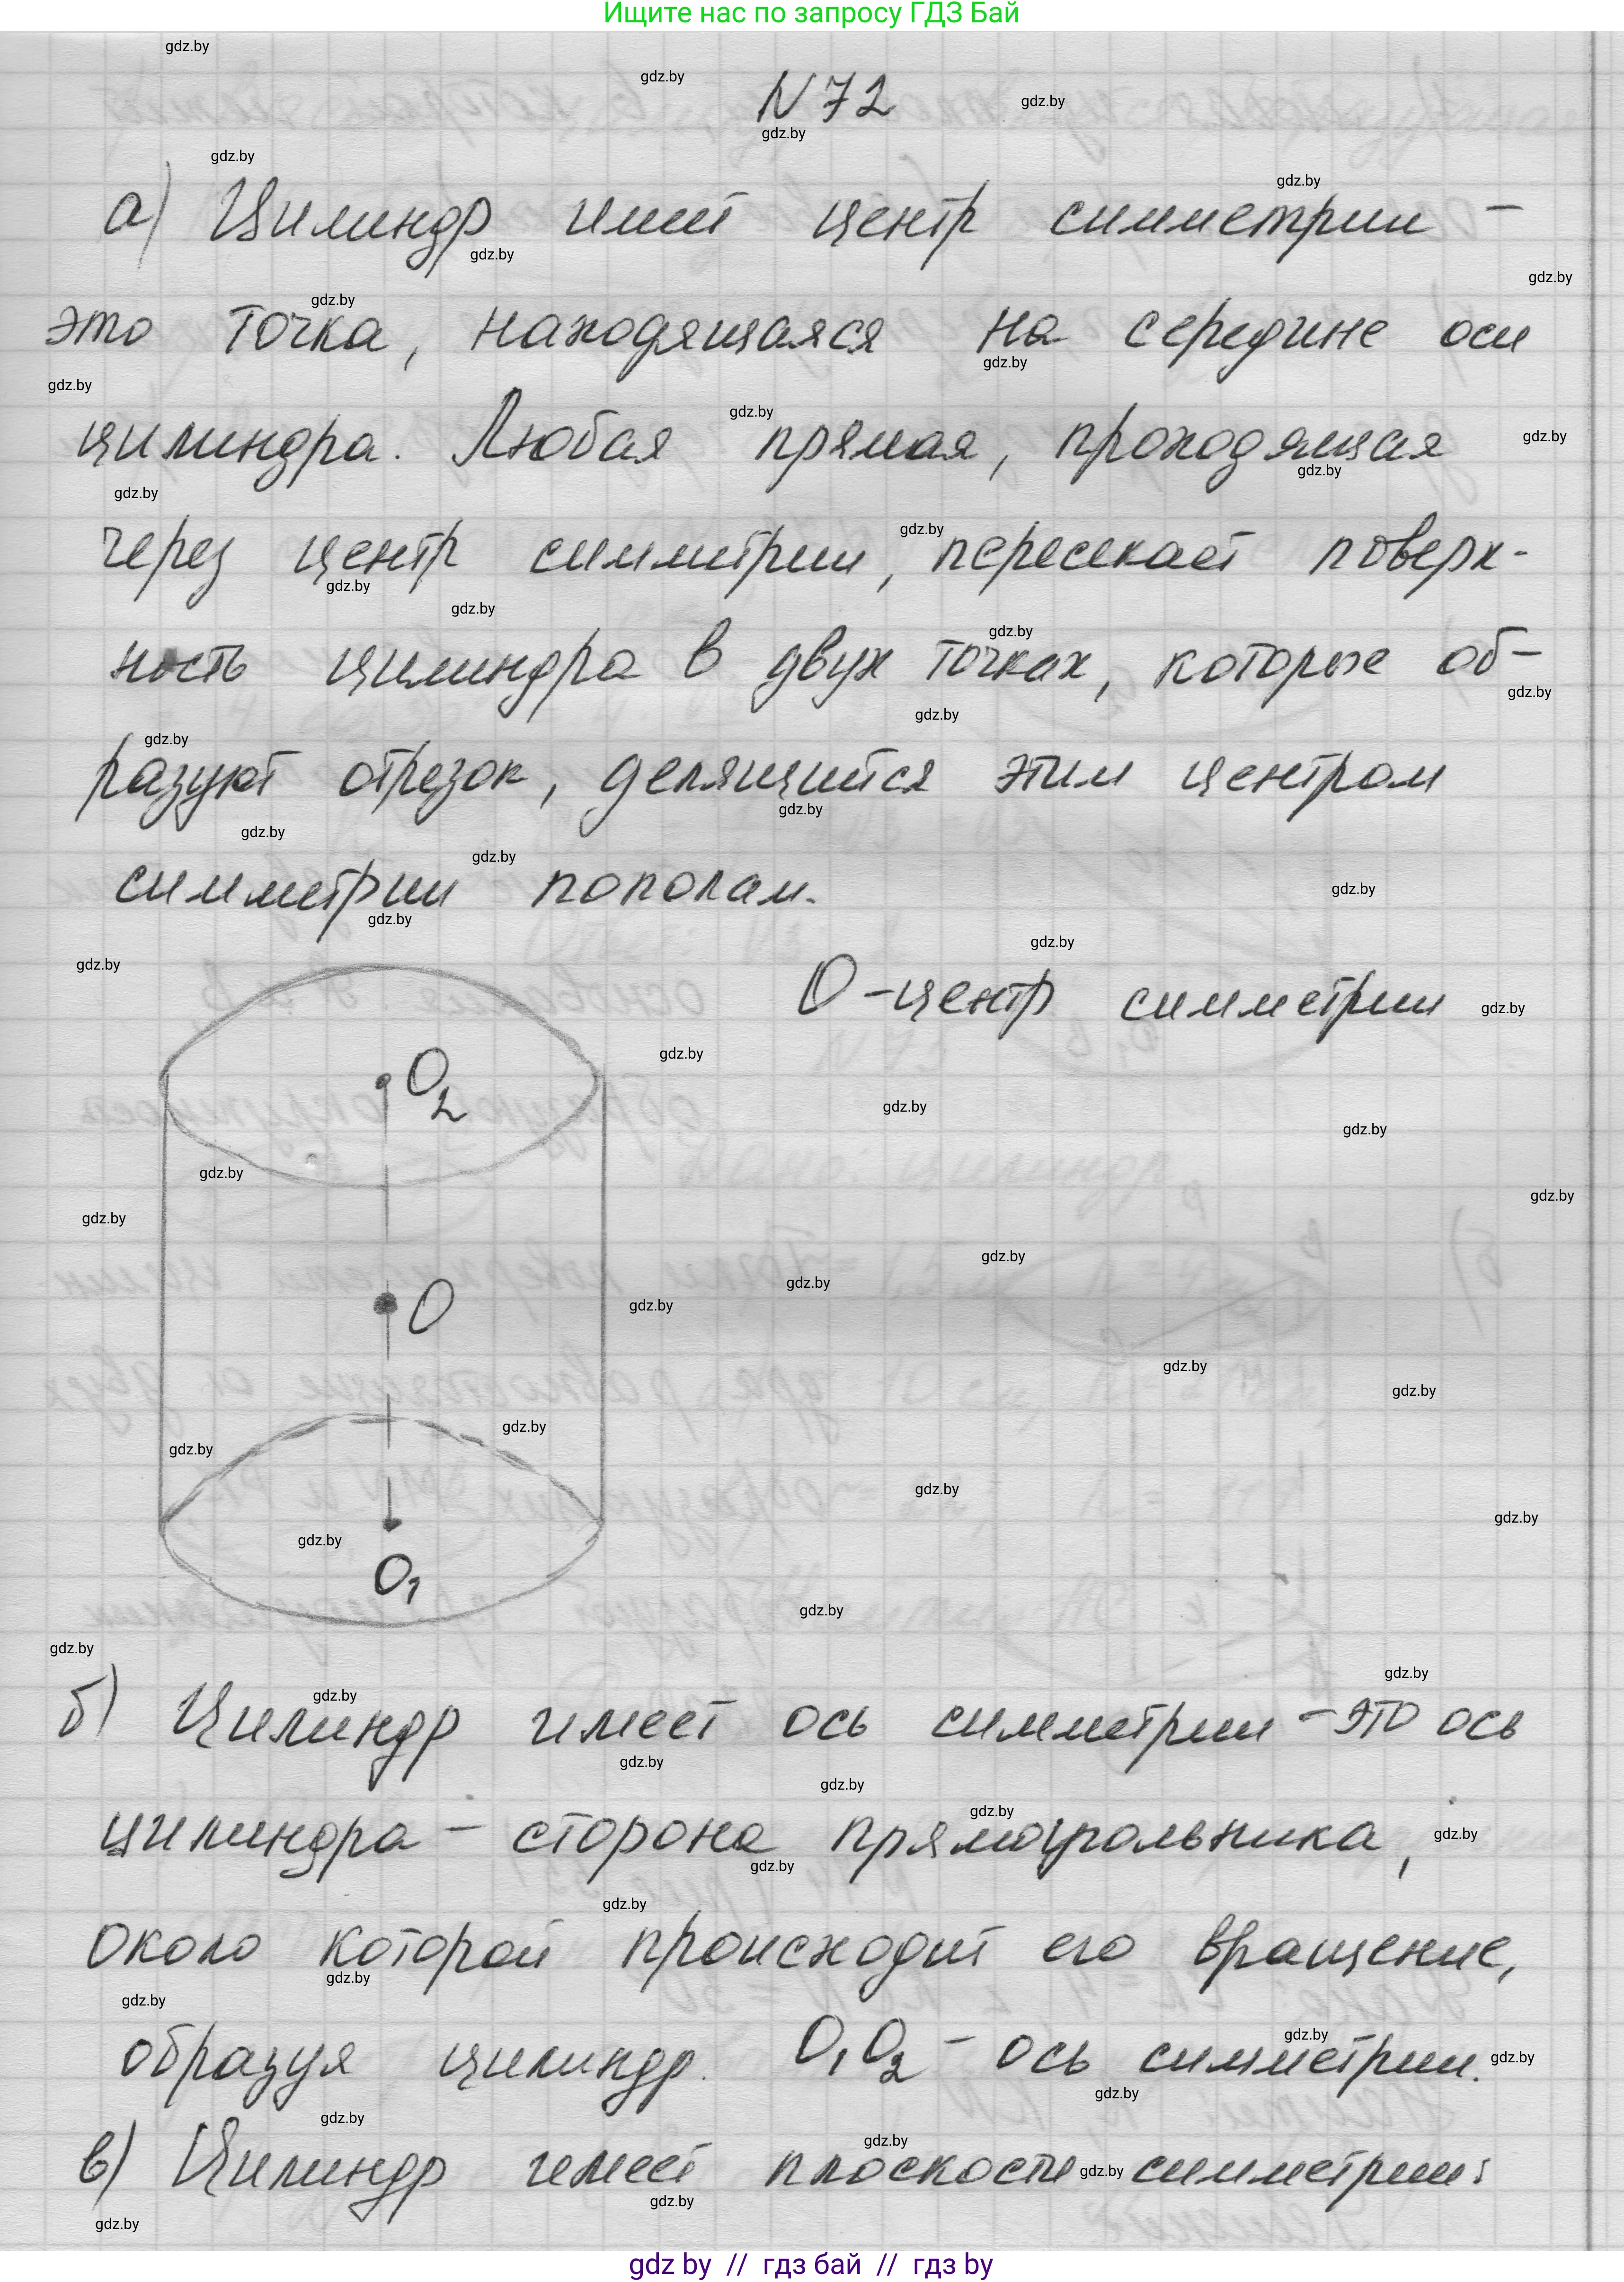 Ищите нас по запросу ГДЗ Бай
N 72
а) Цилиндр имеет центр симметрии –
это точка, находящаяся на середине оси
цилиндра. Любая прямая, проходящая
через центр симметрии, пересекает поверх-
ность цилиндра в двух точках, которые об-
разуют отрезок, делящийся этим центром
симметрии пополам.
O – центр симметрии
O₂
O
O₁
б) Цилиндр имеет ось симметрии – это ось
цилиндра – сторона прямоугольника,
около которой происходит его вращение,
образуя цилиндр. O₁O₂ – ось симметрии.
в) Цилиндр имеет плоскости симметрии:
gdz by // гдз бай // гдз by